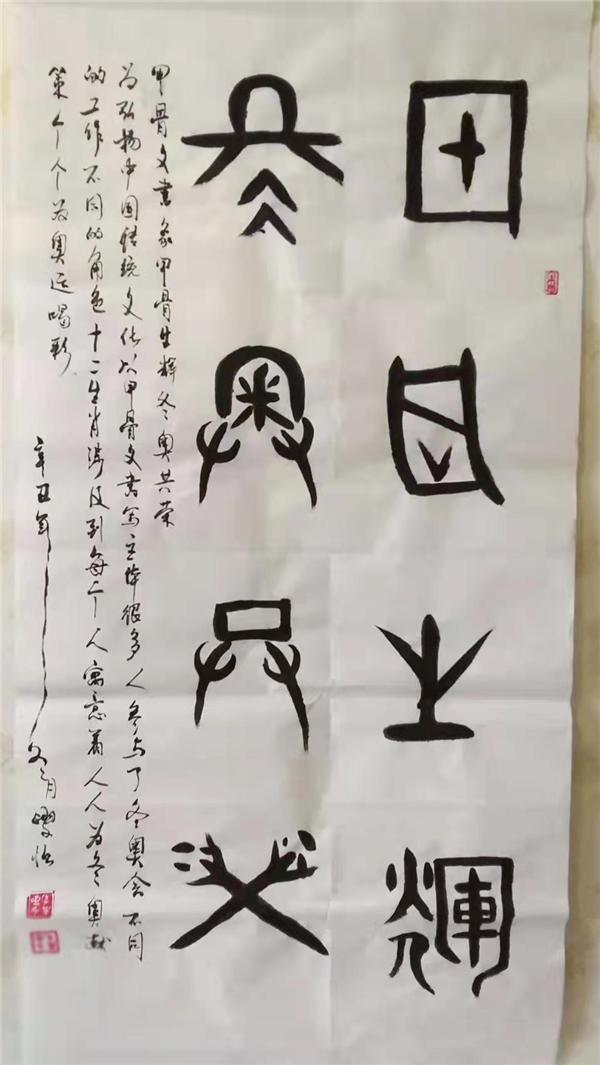 甲骨生輝
冬奥共荣
甲骨文書甲骨生辉冬奥共荣
为弘扬中国传统文化以甲骨文书写主体很多人参与了冬奥会不同
的工作不同的角色十二生肖涉及到每个人寓意着人人为冬奥献
策个个为奥运喝彩
辛丑年冬月